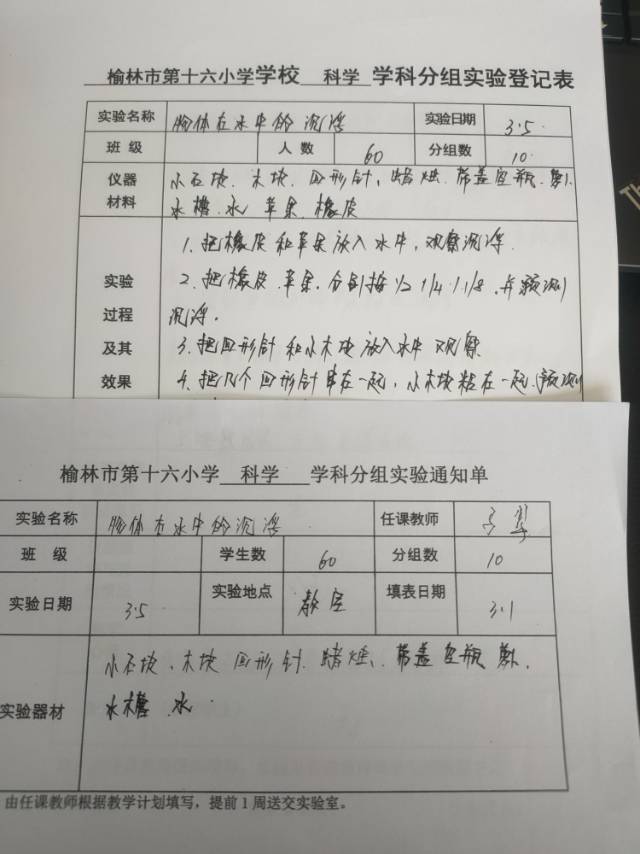 榆林市第十六小学学校 科学 学科分组实验登记表
实验名称 物体在水中的沉浮 实验日期 3.5.
班级 人数 60 分组数 10.
仪器材料 小石块. 木块. 回形针, 蜡烛. 带盖空瓶. 萝卜.
水槽. 水 苹果. 橡皮
实验过程及其效果
1. 把橡皮和苹果放入水中, 观察沉浮.
2. 把橡皮. 苹果. 分别按 1/2 1/4. 1/8. 并预测
沉浮.
3. 把回形针和小木块放入水中 观察
4. 把几个回形针串在一起, 小木块粘在一起. 预测
榆林市第十六小学 科学 学科分组实验通知单
实验名称 物体在水中的沉浮 任课教师
班级 学生数 60 分组数 10
实验日期 3.5 实验地点 教室 填表日期 3.1
实验器材 小石块、木块 回形针. 蜡烛. 带盖空瓶 萝卜.
水槽 水
由任课教师根据教学计划填写，提前1周送交实验室。